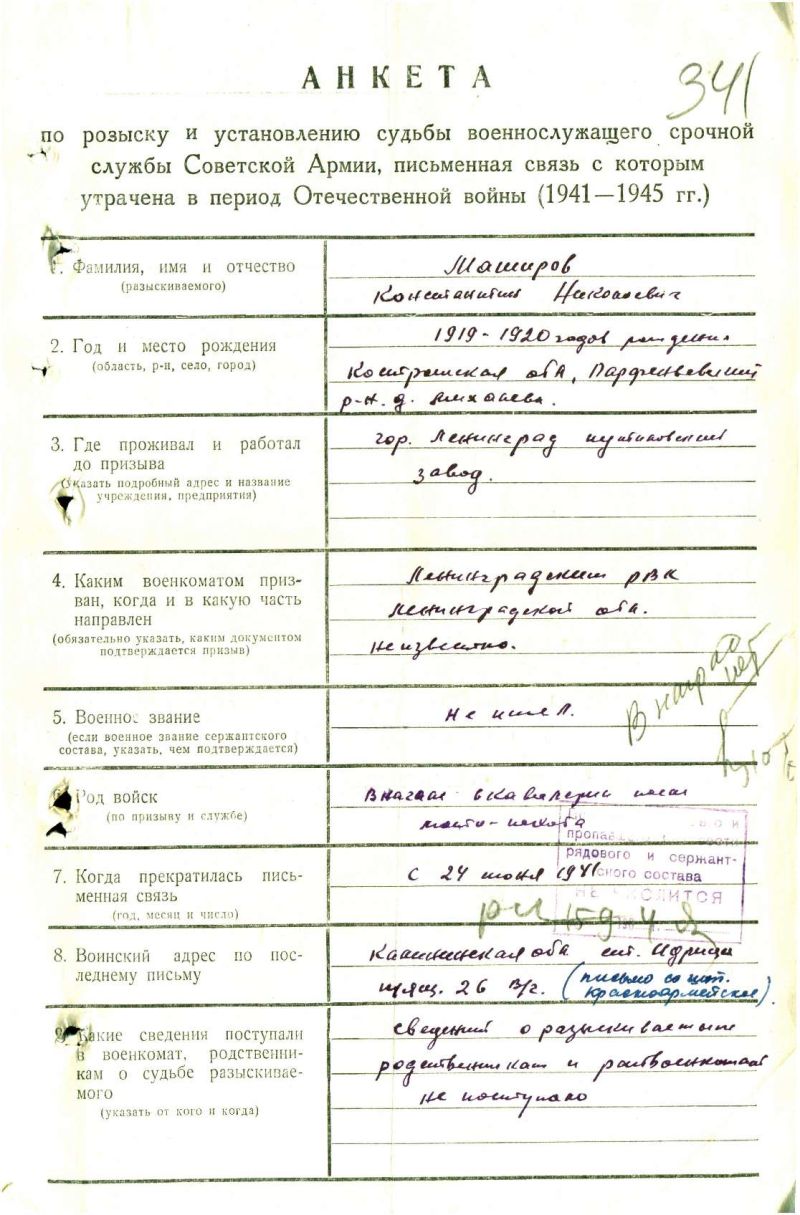 АНКЕТА
341
по розыску и установлению судьбы военнослужащего срочной
службы Советской Армии, письменная связь с которым
утрачена в период Отечественной войны (1941—1945 гг.)
1. Фамилия, имя и отчество
(разыскиваемого)
Маширов
Константин Николаевич
2. Год и место рождения
(область, р-н, село, город)
1919-1920 годов рождения
Костромская обл, Парфеньевский
р-н. д.
3. Где проживал и работал
до призыва
(указать подробный адрес и название
учреждения, предприятия)
гор. Ленинград путиловский
завод.
4. Каким военкоматом приз-
ван, когда и в какую часть
направлен
(обязательно указать, каким документом
подтверждается призыв)
Ленинградским РВК
Ленинградской обл.
неизвестно.
5. Военное звание
(если военное звание сержантского
состава, указать, чем подтверждается)
не имел.
В наград
нет
6. Род войск
(по призыву и службе)
Вначале в кавалерии
пехота
7. Когда прекратилась пись-
менная связь
(год, месяц и число)
с 24 июня 1941
рядового и сержант-
ского состава
НЕ ЧИСЛИТСЯ
8. Воинский адрес по пос-
леднему письму
Калининская обл ст. Идрица
п/ящ. 26 В/г. (письмо со шт.
Красноармейское).
9. Какие сведения поступали
в военкомат, родственни-
кам о судьбе разыскивае-
мого
(указать от кого и когда)
сведений о разыскиваемом
родственникам и райвоенкомат
не поступало